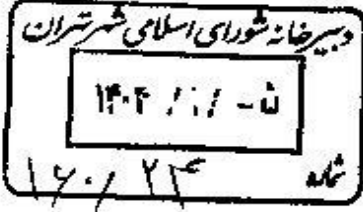 دبیرخانه شورای اسلامی شهر تهران
۱۴۰۴ / ۱۰ / - ۵
شماره ۱۶۰/ ۲۴